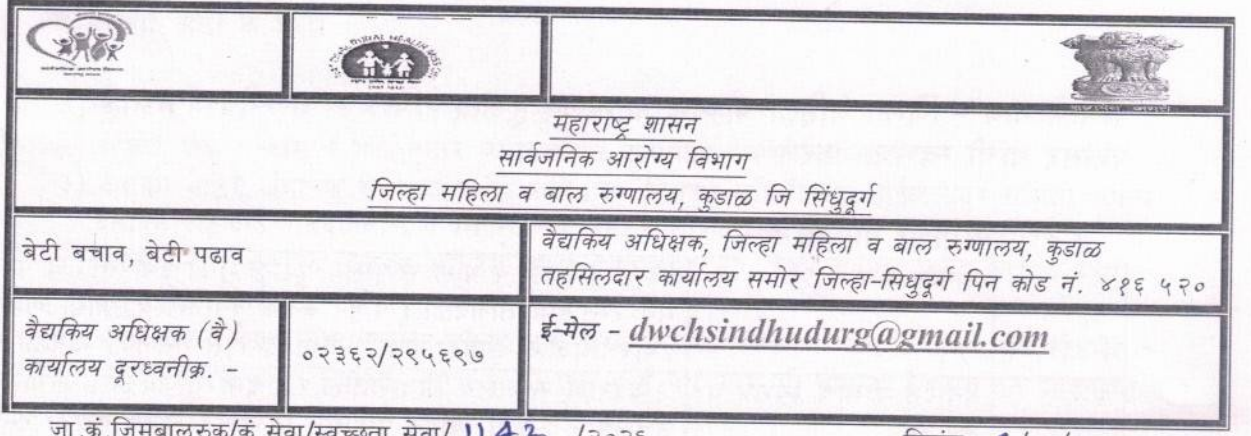 महाराष्ट्र शासन
सार्वजनिक आरोग्य विभाग
जिल्हा महिला व बाल रुग्णालय, कुडाळ जि सिंधुदूर्ग
बेटी बचाव, बेटी पढाव
वैद्यकिय अधिक्षक, जिल्हा महिला व बाल रुग्णालय, कुडाळ
तहसिलदार कार्यालय समोर जिल्हा-सिंधुदूर्ग पिन कोड नं. ४१६ ५२०
वैद्यकिय अधिक्षक (वै)
कार्यालय दूरध्वनीक्र. -
०२३६२/२९५६९७
ई-मेल - dwchsindhudurg@gmail.com